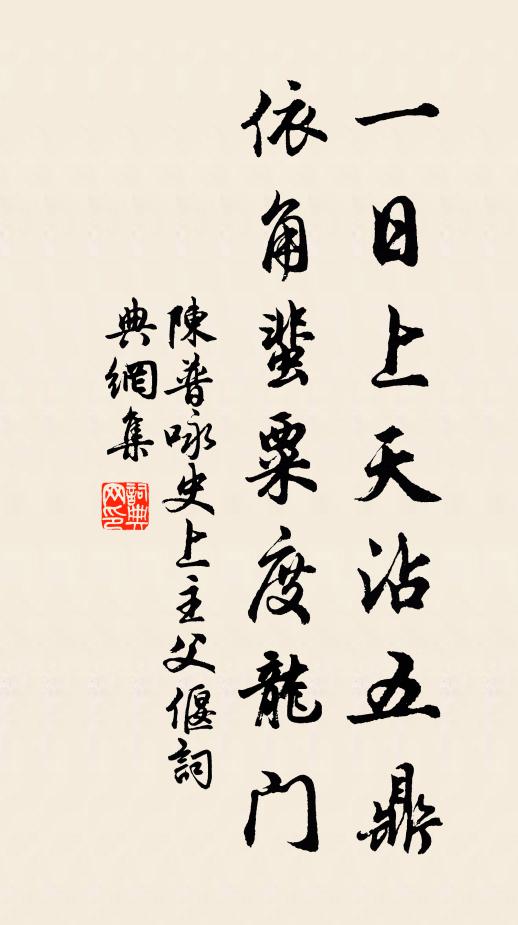 一日上天沾五鼎
依角蜚粟度龍门
陳普咏史上主父偃詞
典網集
詞典网印